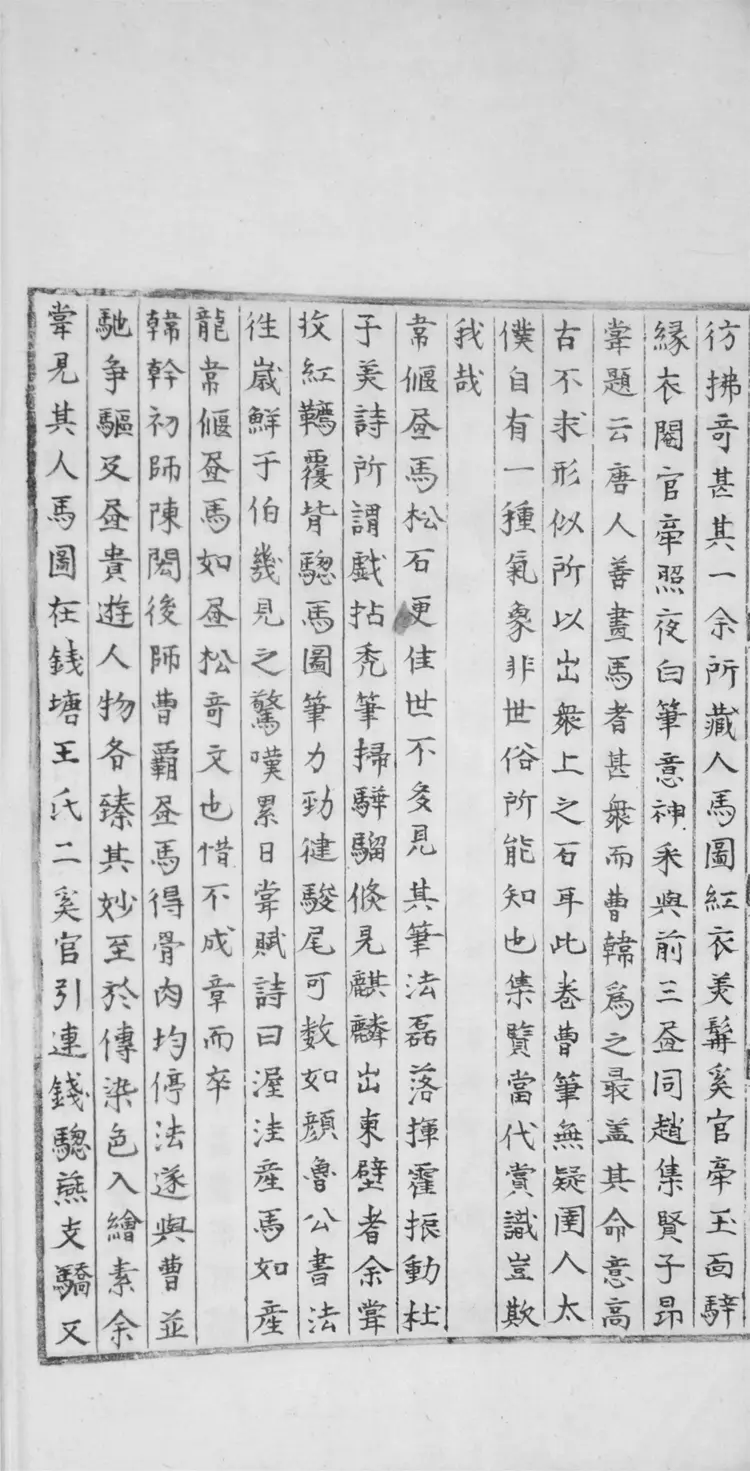 彷拂奇甚其一余所藏人馬圖紅衣美髯奚官牽玉面騂
緑衣閹官牽照夜白筆意神采與前三𦘕同趙集賢子昂
甞題云唐人善畫馬者甚衆而曹韓為之最盖其命意高
古不求形似所以出衆上之石耳此卷曹筆無疑圉人太
僕自有一種氣象非世俗所能知也集賢當代賞識豈欺
我哉
韋偃𦘕馬松石更佳世不多見其筆法磊落揮霍振動杜
子美詩所謂戲拈禿筆掃驊騮倐見麒麟出東壁者余甞
收紅韉覆背驄馬圖筆力勁健駿尾可数如顔魯公書法
徃歳鮮于伯幾見之驚嘆累日甞賦詩曰渥洼産馬如産
龍韋偃𦘕馬如𦘕松竒文也惜不成章而卒
韓幹初師陳閎後師曹霸𦘕馬得骨肉均停法遂與曹並
馳争驅及𦘕貴遊人物各臻其妙至於傳染色入繪素余
甞見其人馬圖在錢塘王氏二奚官引連錢驄燕支驕又